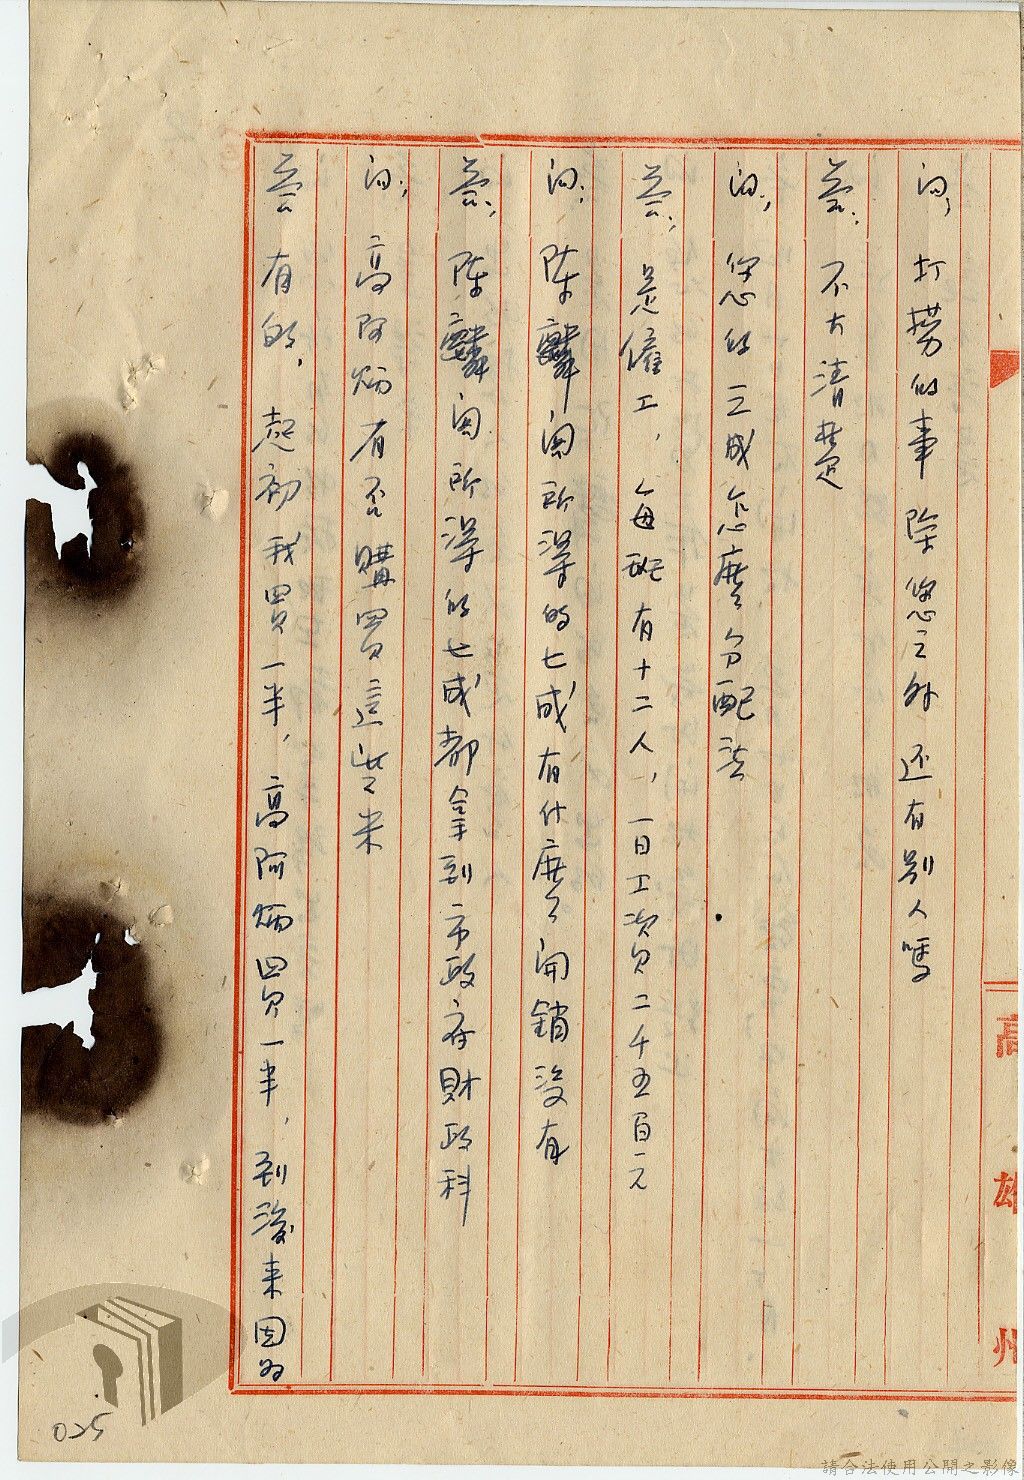 问; 打撈的事除您之外还有别人嗎
荅; 不大清楚
问; 您的三成怎麽分配法
荅; 是僱工，每班有十二人，一日工資二千五百元
问; 陈麟国所得的七成有什麽開銷没有
荅; 陈麟国所得的七成都拿到市政府財政科
问; 高阿炳有否購買這些米
荅 有的，起初我買一半，高阿炳買一半，到後来因为
高雄州
025
請合法使用公開之影像